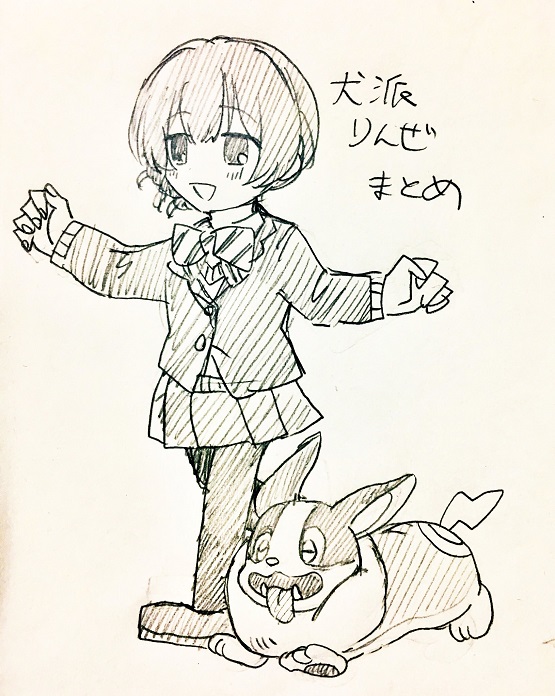 犬派
りんぜ
まとめ